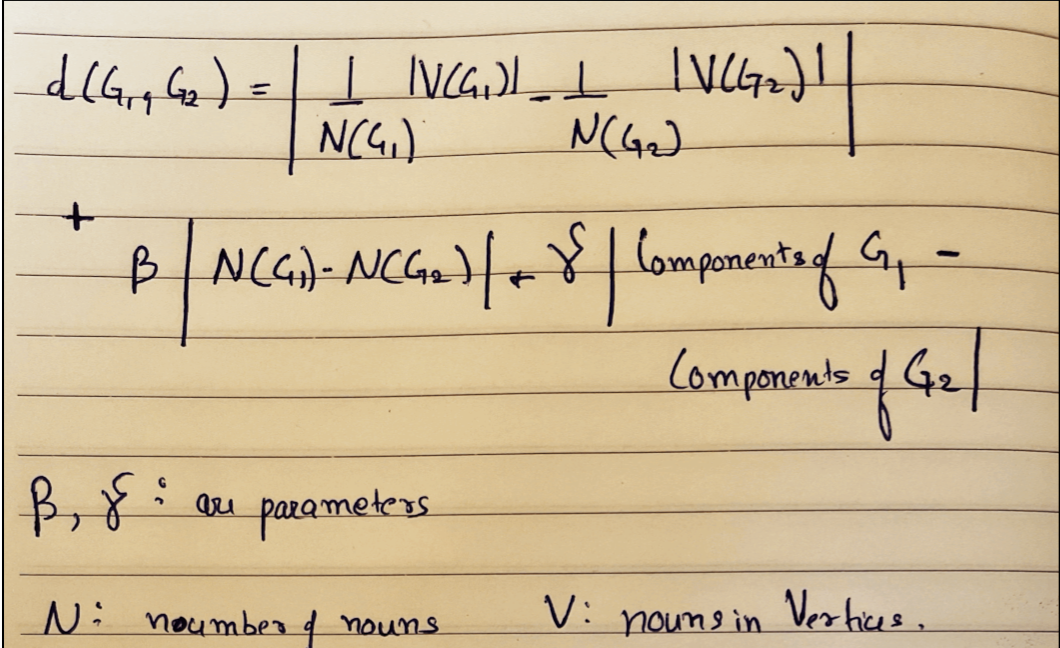 d(G₁, G₂) = | 1/N(G₁) |V(G₁)| - 1/N(G₂) |V(G₂)| |
+
β | N(G₁) - N(G₂) | + γ | Components of G₁ -
Components of G₂ |
β, γ : are parameters
N: noumber of nouns V: nouns in Vertices.